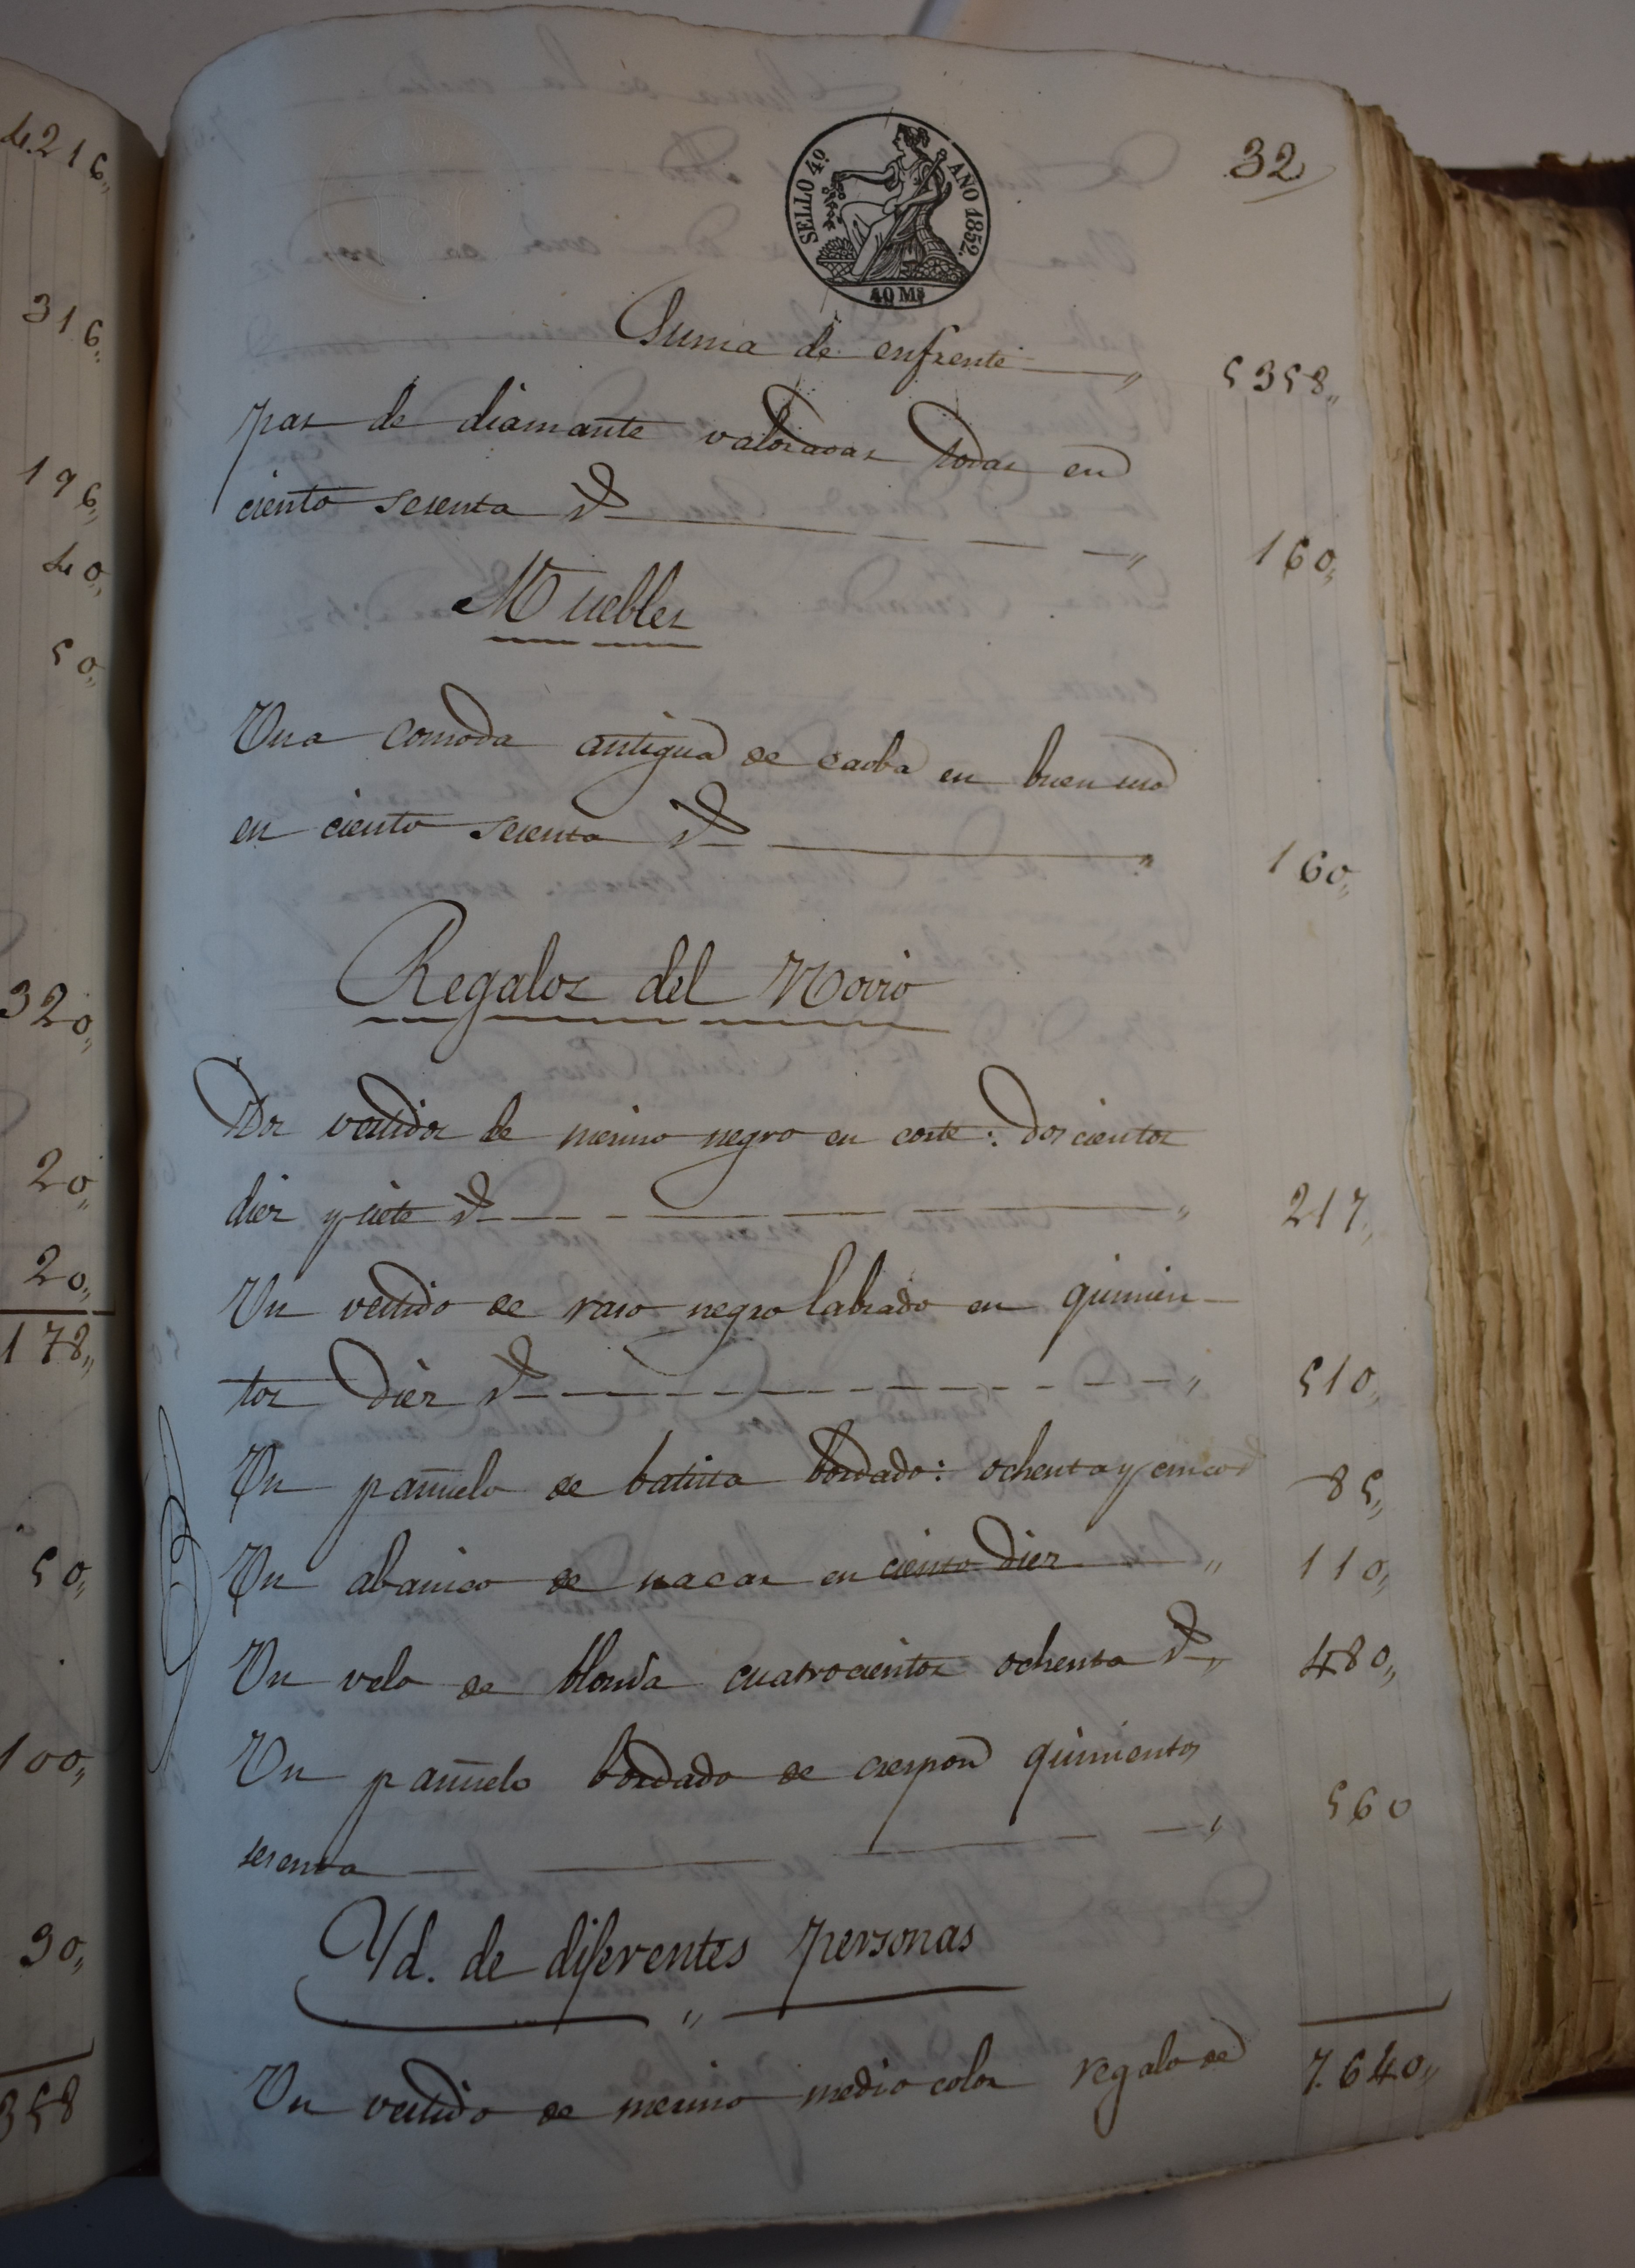 4.216,,
316,,
196,,
40,,
50,,
320,,
20,,
20,,
178,,
50,,
100,,
90,,
358
SELLO 4º AÑO 1852.
40 Ms
32
Suma de enfrente ,, 5358,,
pas de diamante valoradas todas en
ciento sesenta rs ,, 160,,
Muebles
Una comoda antigua de caoba en buen uso
en ciento sesenta rs ,, 160,,
Regalos del Novio
Dos vestidos de merino negro en corte: doscientos
diez y siete rs ,, 217,,
Un vestido de raso negro labrado en quinien-
tos diez rs ,, 510,,
Un pañuelo de batista bordado: ochenta y cinco rs 85,,
Un abanico de nacar en ciento diez ,, 110,,
Un velo de blonda cuatrocientos ochenta rs ,, 480,,
Un pañuelo bordado de crespon quinientos
sesenta ,, 560
Yd. de diferentes personas
Un vestido de merino medio color regalo de 7.640,,